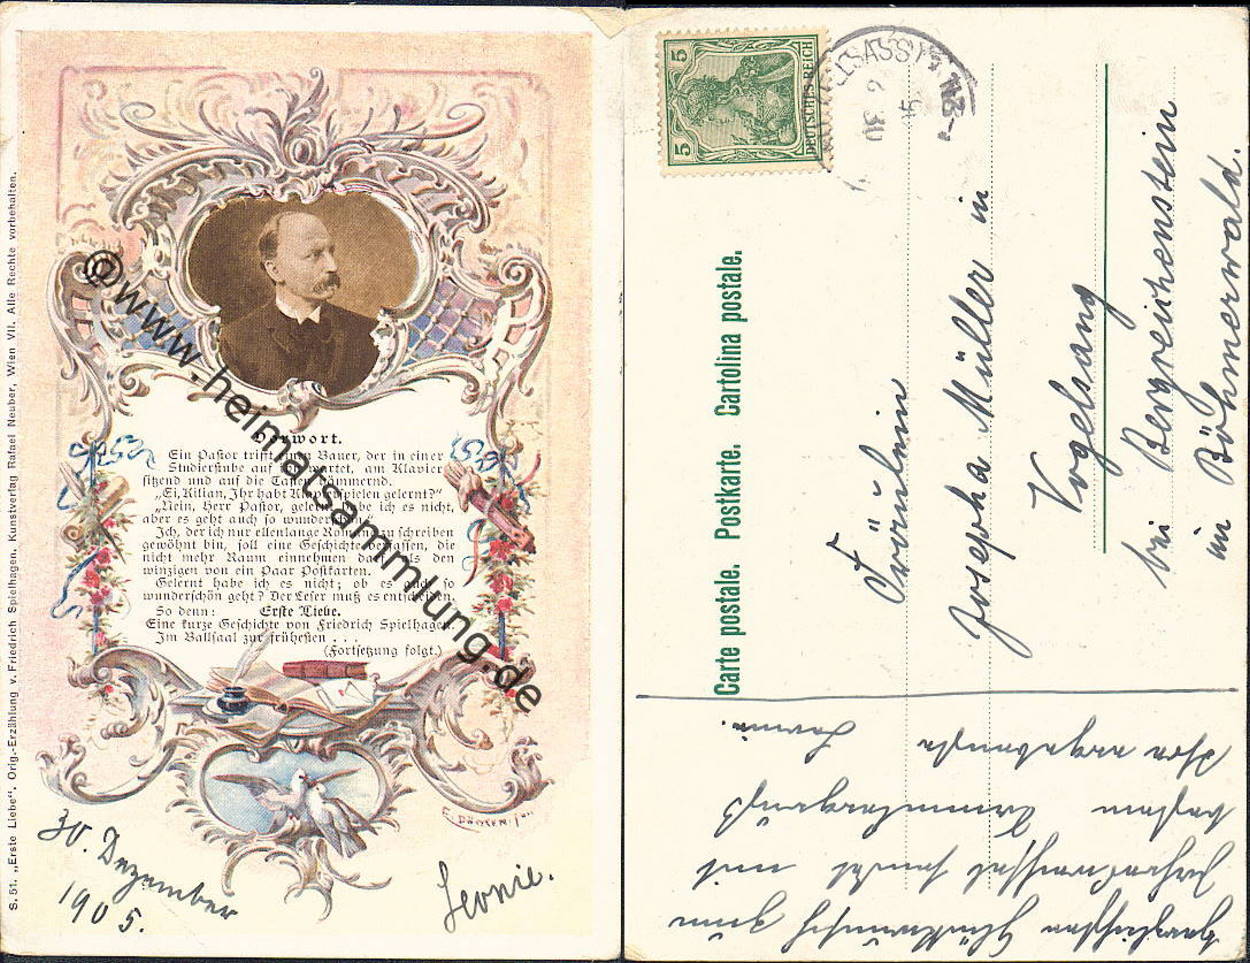 S. 51. „Erste Liebe“. Orig.-Erzählung v. Friedrich Spielhagen. Kunstverlag Rafael Neuber, Wien VII. Alle Rechte vorbehalten.
Vorwort.
Ein Pastor trifft einen Bauer, der in einer
Studierstube auf ihn wartet, am Klavier
sitzend und auf die Tasten hämmernd.
„Ei, Kilian, Ihr habt Klavierspielen gelernt?“
„Nein, Herr Pastor, gelernt habe ich es nicht,
aber es geht auch so wunderschön.“
Ich, der ich nur ellenlange Romane zu schreiben
gewöhnt bin, soll eine Geschichte verfassen, die
nicht mehr Raum einnehmen darf als den
winzigen von ein Paar Postkarten.
Gelernt habe ich es nicht; ob es auch so
wunderschön geht? Der Leser muß es entscheiden.
So denn: Erste Liebe.
Eine kurze Geschichte von Friedrich Spielhagen.
Im Ballsaal zur frühesten . . .
(Fortsetzung folgt.)
@www.heimatsammlung.de
30. Dezember
1905.
Leonie.
5 5
DEUTSCHES REICH
Carte postale. Postkarte. Cartolina postale.
Fräulein
Josepha Müller in
Vogelsang
bei Bergreichenstein
im Böhmerwald.
Herzlichsten Glückwunsch zum
Jahreswechsel sendet mit
bestem
Ihre ergebenste
Leonie.